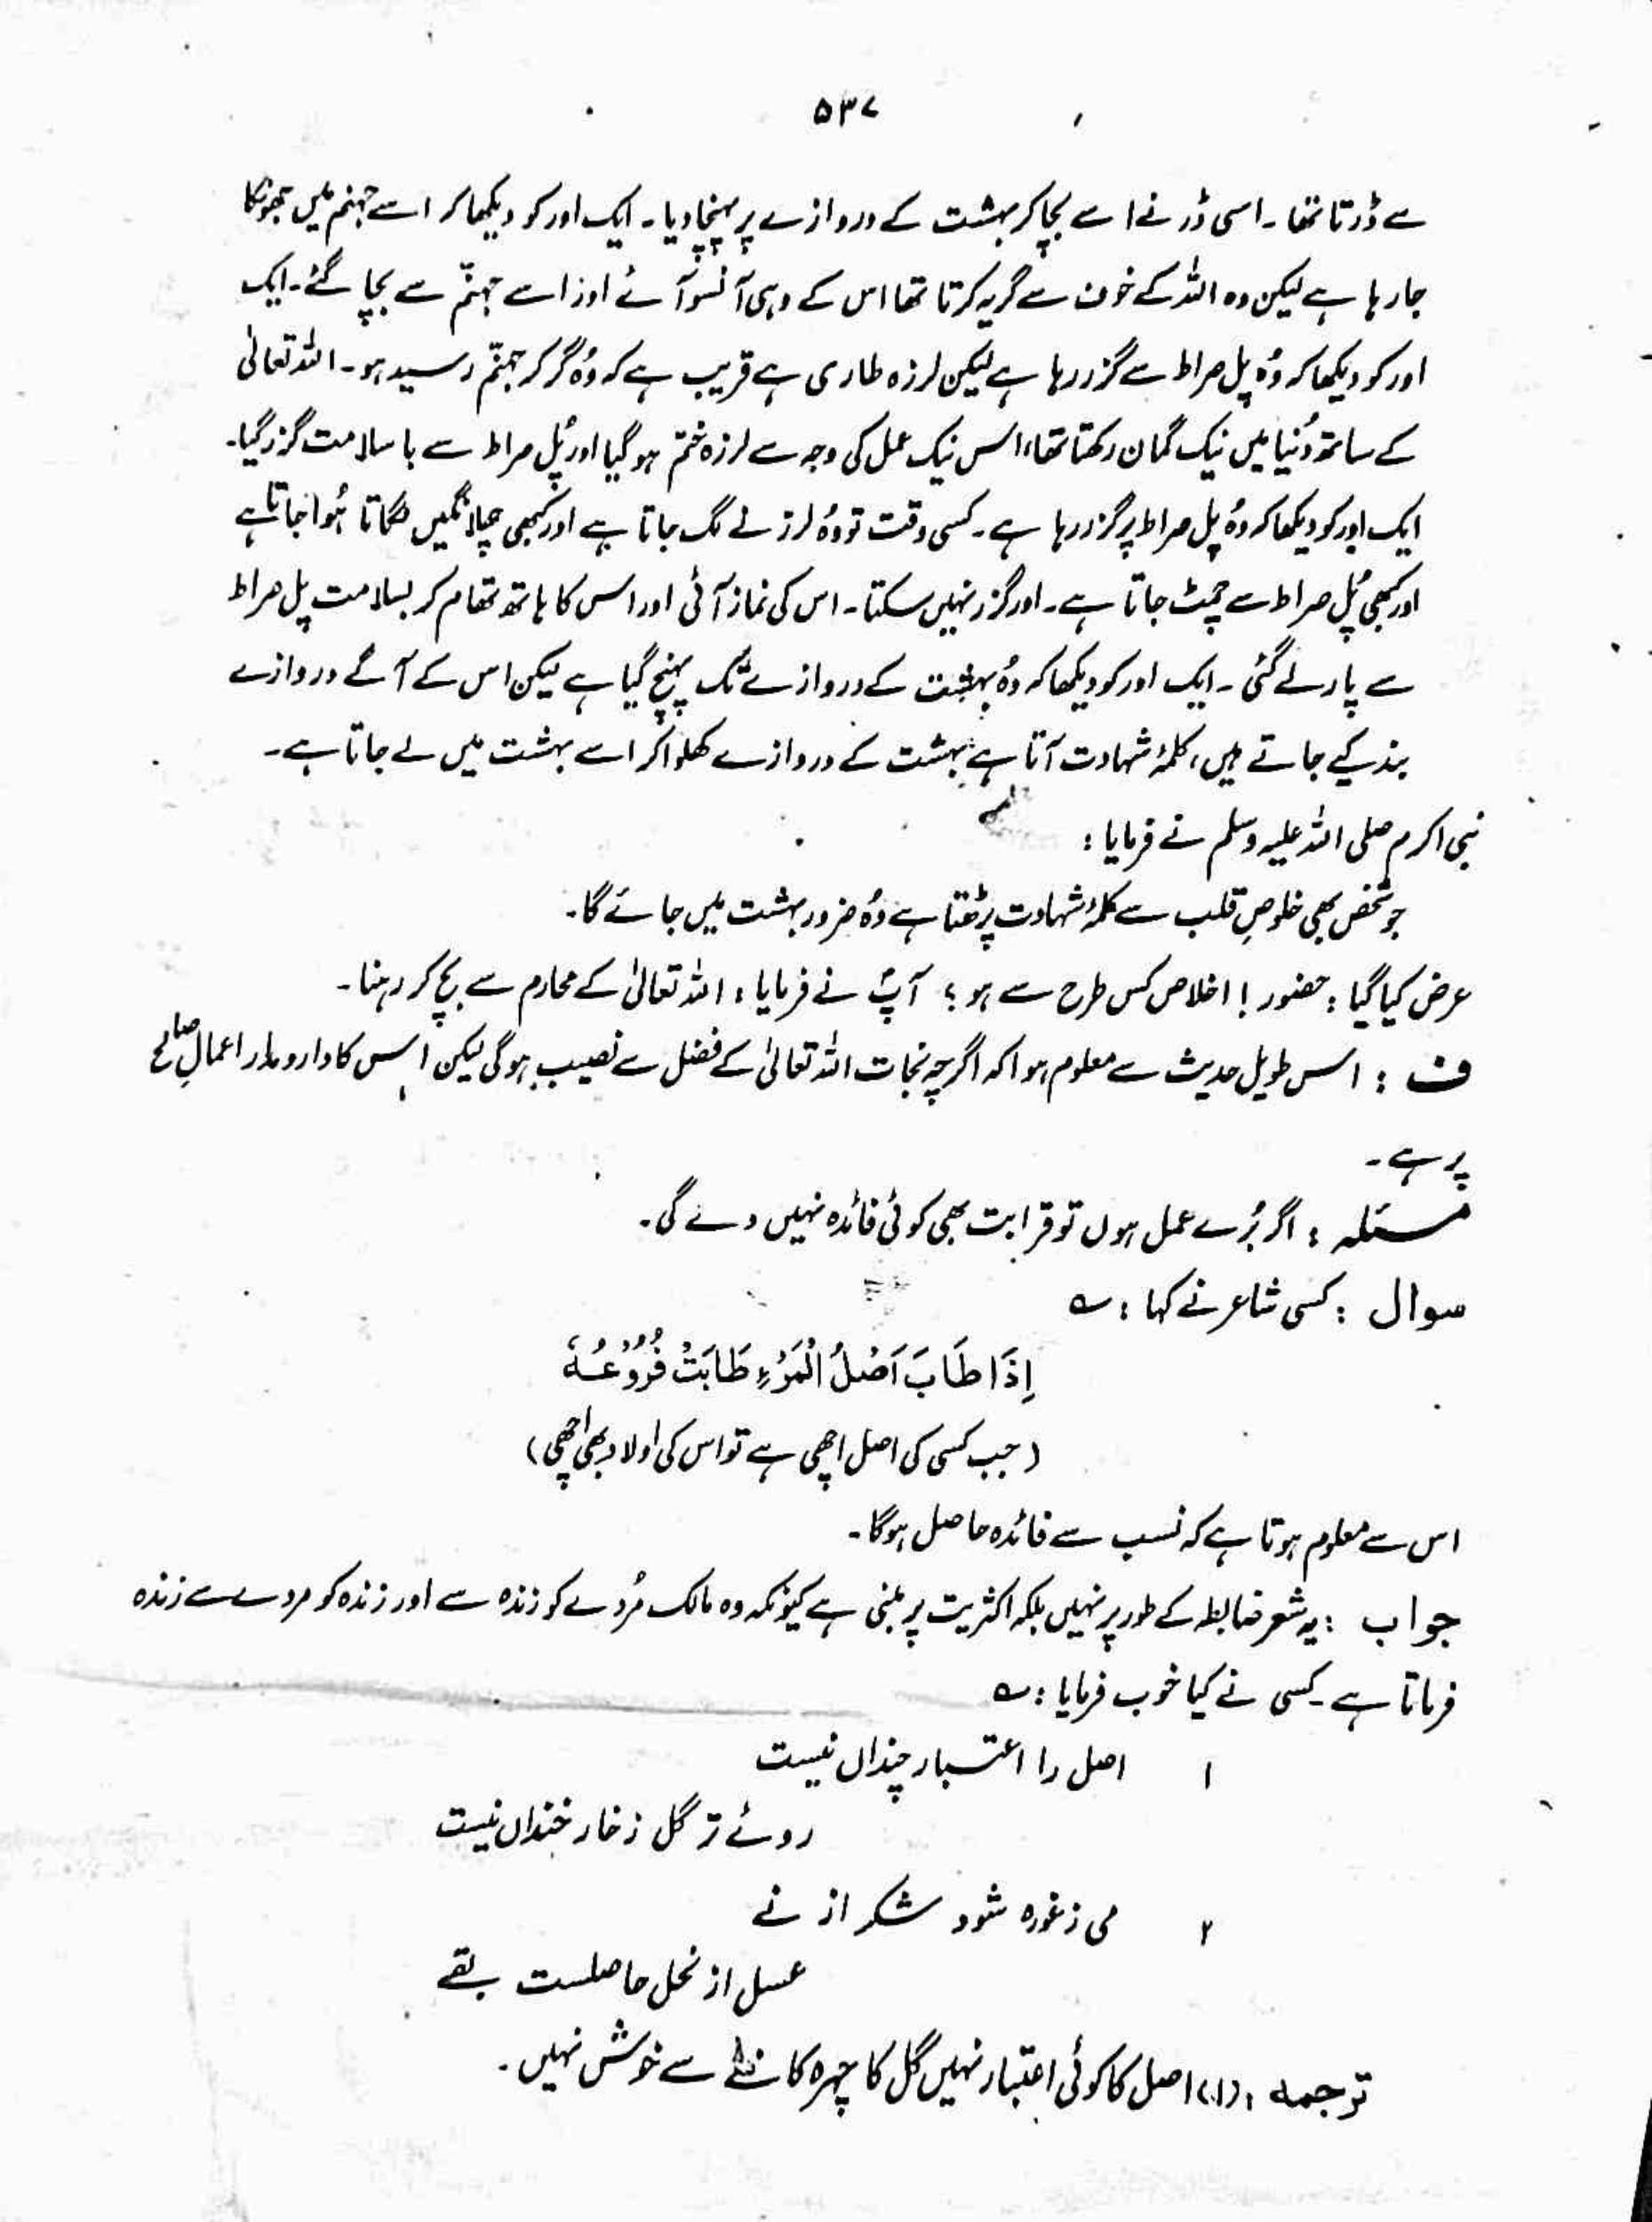 ۵۳۷
سے ڈرتا تھا ۔ اسی ڈر نے اسے بچا کر بہشت کے دروازے پر پہنچا دیا ۔ ایک اور کو دیکھا کہ اسے جہنم میں جھونکا
جا رہا ہے لیکن وہ اللہ کے خوف سے گریہ کرتا تھا اس کے وہی آنسو آئے اور اسے جہنّم سے بچا گئے ۔ ایک
اور کو دیکھا کہ وُہ پل صراط سے گزر رہا ہے لیکن لرزہ طاری ہے قریب ہے کہ وُہ گر کر جہنّم رسید ہو ۔ اللہ تعالیٰ
کے ساتھ دُنیا میں نیک گمان رکھتا تھا، اس نیک عمل کی وجہ سے لرزہ ختم ہو گیا اور پُل صراط سے با سلامت گزر گیا۔
ایک اور کو دیکھا کہ وُہ پل صراط پر گزر رہا ہے ۔ کسی وقت تو وُہ لرزنے لگ جاتا ہے اور کبھی چھلانگیں لگاتا ہُوا جاتا ہے
اور کبھی پُل صراط سے چمٹ جاتا ہے ۔ اور گزر نہیں سکتا ۔ اس کی نماز آئی اور اس کا ہاتھ تھام کر بسلامت پل صراط
سے پار لے گئی ۔ ایک اور کو دیکھا کہ وُہ بہشت کے دروازے تک پہنچ گیا ہے لیکن اس کے آگے دروازے
بند کیے جاتے ہیں، کلمۂ شہادت آتا ہے بہشت کے دروازے کھلوا کر اسے بہشت میں لے جاتا ہے ۔
نبی اکرم صلی اللہ علیہ وسلم نے فرمایا :
جو شخص بھی خلوصِ قلب سے کلمۂ شہادت پڑھتا ہے وُہ ضرور بہشت میں جائے گا ۔
عرض کیا گیا : حضور ! اخلاص کس طرح سے ہو ؟ آپؐ نے فرمایا : اللہ تعالیٰ کے محارم سے بچ کر رہنا ۔
ف : اس طویل حدیث سے معلوم ہوا کہ اگرچہ نجات اللہ تعالیٰ کے فضل سے نصیب ہوگی لیکن اس کا دارومدار اعمالِ صالحہ
پر ہے ۔
مسئلہ : اگر بُرے عمل ہوں تو قرابت بھی کوئی فائدہ نہیں دے گی ۔
سوال : کسی شاعر نے کہا : ؎
اِذَا طَابَ اَصْلُ الْمَرْءِ طَابَتْ فُرُوْعُهٗ
( جب کسی کی اصل اچھی ہے تو اس کی اولاد بھی اچھی )
اس سے معلوم ہوتا ہے کہ نسب سے فائدہ حاصل ہوگا ۔
جواب : یہ شعر ضابطہ کے طور پر نہیں بلکہ اکثریت پر مبنی ہے کیونکہ وہ مالک مُردے کو زندہ سے اور زندہ کو مردے سے زندہ
فرماتا ہے ۔ کسی نے کیا خوب فرمایا : ؎
۱ اصل را اعتبار چنداں نیست
روئے تر گل ز خار خنداں نیست
۲ می ز غورہ شود شکر از نے
عسل از نحل حاصلست بقے
ترجمہ : (۱) اصل کا کوئی اعتبار نہیں گل کا چہرہ کانٹے سے خوش نہیں ۔